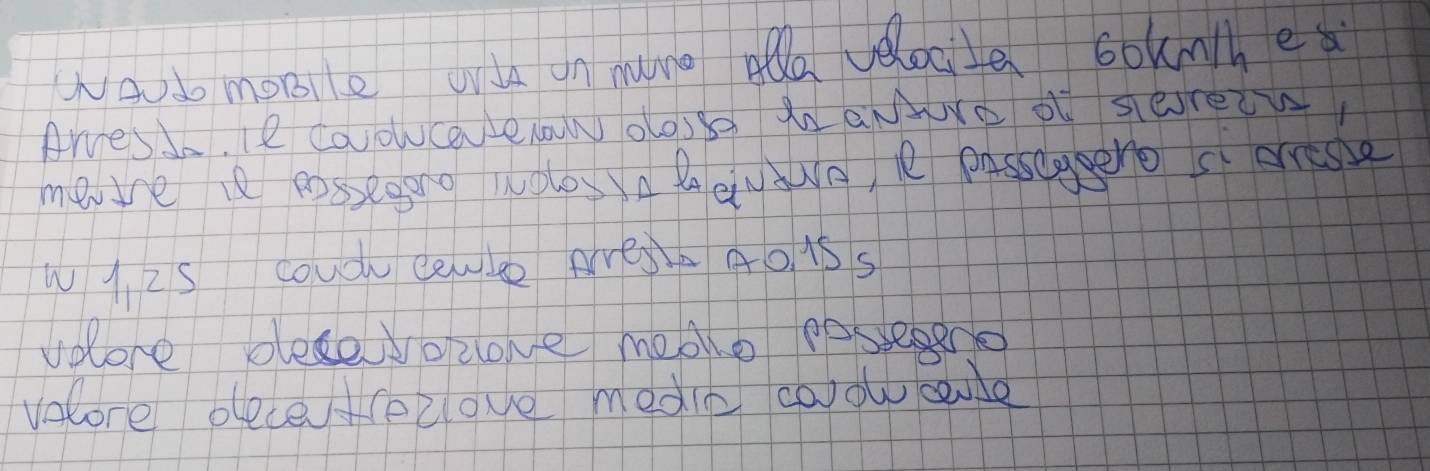 un automobile urta un muro alla velocita 60km/h e si
Arresta. il conducente non dossa la cintura di sicurezza,
mentre il passegero indossa la cintura, il passeggero si arresta
in 1,2s conducente Arresta A 0,15 s
valore decentrazione medio passegero
valore decentrazione media conducente